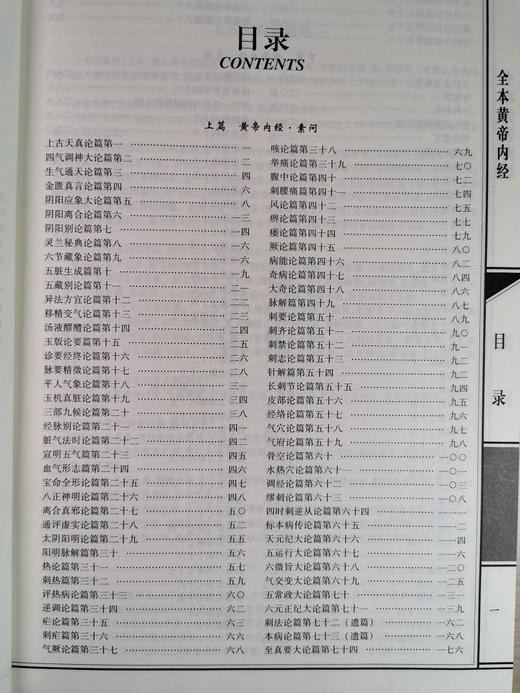 目录
CONTENTS
上篇 黄帝内经·素问
上古天真论篇第一 …… 一
四气调神大论篇第二 …… 二
生气通天论篇第三 …… 四
金匮真言论篇第四 …… 六
阴阳应象大论篇第五 …… 八
阴阳离合论篇第六 …… 一三
阴阳别论篇第七 …… 一四
灵兰秘典论篇第八 …… 一六
六节藏象论篇第九 …… 一八
五脏生成篇第十 …… 一九
五藏别论篇第十一 …… 二一
异法方宜论篇第十二 …… 二二
移精变气论篇第十三 …… 二三
汤液醪醴论篇第十四 …… 二四
玉版论要篇第十五 …… 二五
诊要经终论篇第十六 …… 二六
脉要精微论篇第十七 …… 二八
平人气象论篇第十八 …… 三一
玉机真脏论篇第十九 …… 三四
三部九候论篇第二十 …… 三八
经脉别论篇第二十一 …… 四一
脏气法时论篇第二十二 …… 四二
宣明五气篇第二十三 …… 四五
血气形志篇第二十四 …… 四六
宝命全形论篇第二十五 …… 四七
八正神明论篇第二十六 …… 四八
离合真邪论篇第二十七 …… 五〇
通评虚实论篇第二十八 …… 五二
太阴阳明论篇第二十九 …… 五五
阳明脉解篇第三十 …… 五六
热论篇第三十一 …… 五七
刺热篇第三十二 …… 五九
评热病论篇第三十三 …… 六〇
逆调论篇第三十四 …… 六二
疟论篇第三十五 …… 六三
刺疟篇第三十六 …… 六六
气厥论篇第三十七 …… 六八
咳论篇第三十八 …… 六九
举痛论篇第三十九 …… 七〇
腹中论篇第四十 …… 七二
刺腰痛篇第四十一 …… 七四
风论篇第四十二 …… 七五
痹论篇第四十三 …… 七七
痿论篇第四十四 …… 七九
厥论篇第四十五 …… 八〇
病能论篇第四十六 …… 八二
奇病论篇第四十七 …… 八四
大奇论篇第四十八 …… 八六
脉解篇第四十九 …… 八七
刺要论篇第五十 …… 八九
刺齐论篇第五十一 …… 九〇
刺禁论篇第五十二 …… 九一
刺志论篇第五十三 …… 九二
针解篇第五十四 …… 九二
长刺节论篇第五十五 …… 九四
皮部论篇第五十六 …… 九五
经络论篇第五十七 …… 九六
气穴论篇第五十八 …… 九七
气府论篇第五十九 …… 九八
骨空论篇第六十 …… 一〇〇
水热穴论篇第六十一 …… 一〇三
调经论篇第六十二 …… 一〇四
缪刺论篇第六十三 …… 一〇八
四时刺逆从论篇第六十四 …… 一一一
标本病传论篇第六十五 …… 一一二
天元纪大论篇第六十六 …… 一一四
五运行大论篇第六十七 …… 一一六
六微旨大论篇第六十八 …… 一一九
气交变大论篇第六十九 …… 一二五
五常政大论篇第七十 …… 一三一
六元正纪大论篇第七十一 …… 一三九
刺法论篇第七十二（遗篇） …… 一六二
本病论篇第七十三（遗篇） …… 一六八
至真要大论篇第七十四 …… 一七六
全本黄帝内经
目录
一